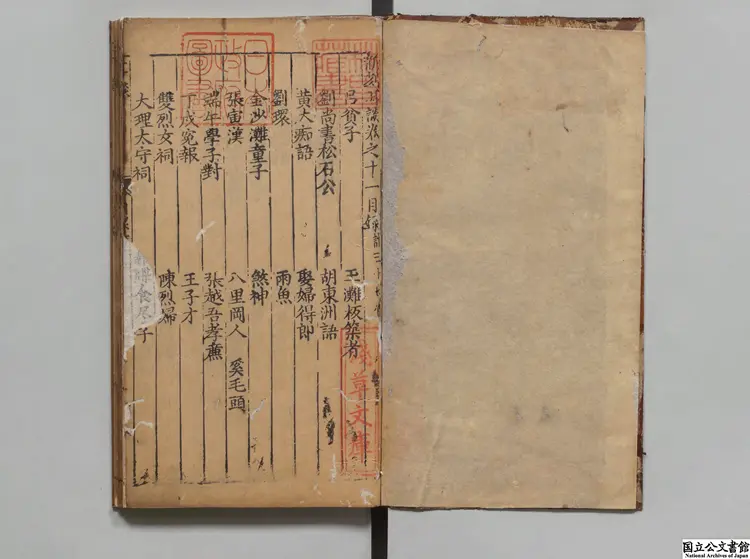 卷之十一目
弓貧子 王灘板築者
劉尚書松石公 胡東洲語
黃大痴語 娶婦得郎
劉環 雨魚
金沙灘童子 煞神
張寅漢 八里岡人 奚毛頭
端午學子對 張越吾孝廉
冤報 王子才
雙烈女祠 陳烈婦
大理太守祠 食 子
日本政府圖書
淺草文庫
国立公文書館
National Archives of Japan